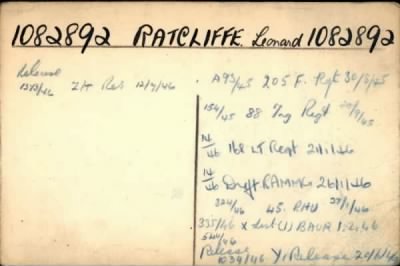 1082892 RATCLIFFE. Leonard 1082892
Release
1373/46 Z/t Res 12/9/46
A93/45 205 F. Rgt 30/5/45
154/45 88 Trg Regt 20/9/45
14/46 168 LT Regt 21.1.46
14/46 Draft 26/1/46
324/46 45. RHU 27/1/46
335/46 X List (1) BAOR 1.2.46
544/46
Release 1034/46 Y/Release